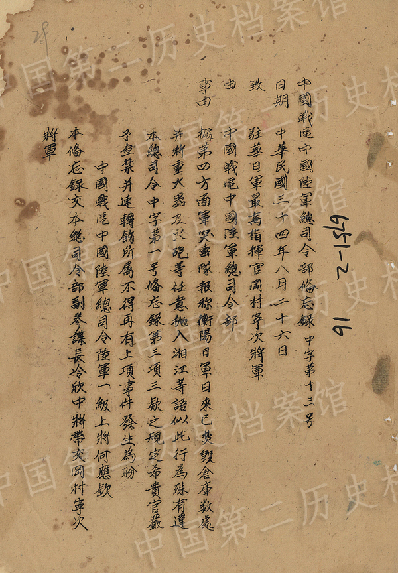 中國戰區中國陸軍總司令部備忘錄 中字第十三号
日期 中華民國三十四年八月二十六日
致 駐華日軍最高指揮官岡村寧次將軍
由 中國戰區中國陸軍總司令部
事由
據第四方面軍 報稱衡陽日軍日來已炸燬倉庫數處
並將重火器及 砲等任意拋入湘江等語似此行為殊有違
本總司令中字第一号備忘錄第三項三款之規定希貴官嚴
予查禁并速轉飭所屬不得再有上項事件發生為盼
中國戰區中國陸軍總司令陸軍一級上將何應欽
本備忘錄交本總司令部副參謀長冷欣中將帶交岡村寧次
將軍
中国第二历史档案馆